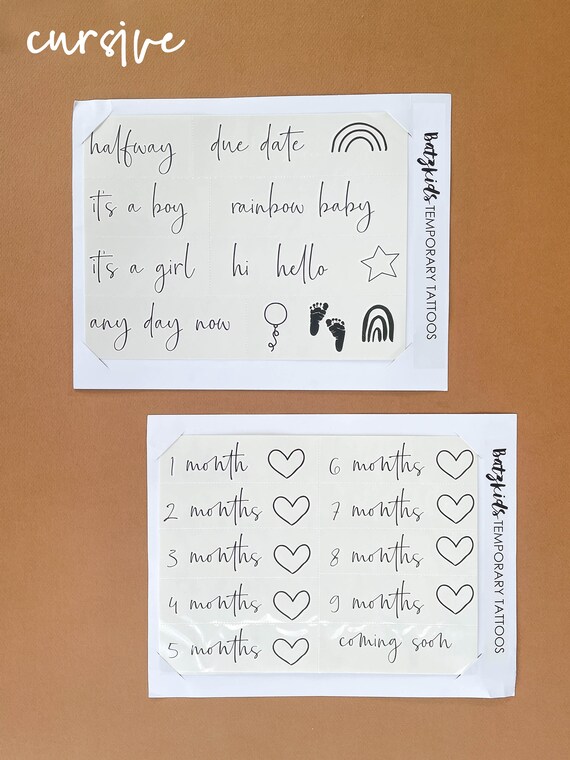 cursive
halfway due date
it's a boy rainbow baby
it's a girl hi hello
any day now
Batzkids TEMPORARY TATTOOS
1 month 6 months
2 months 7 months
3 months 8 months
4 months 9 months
5 months coming soon
Batzkids TEMPORARY TATTOOS